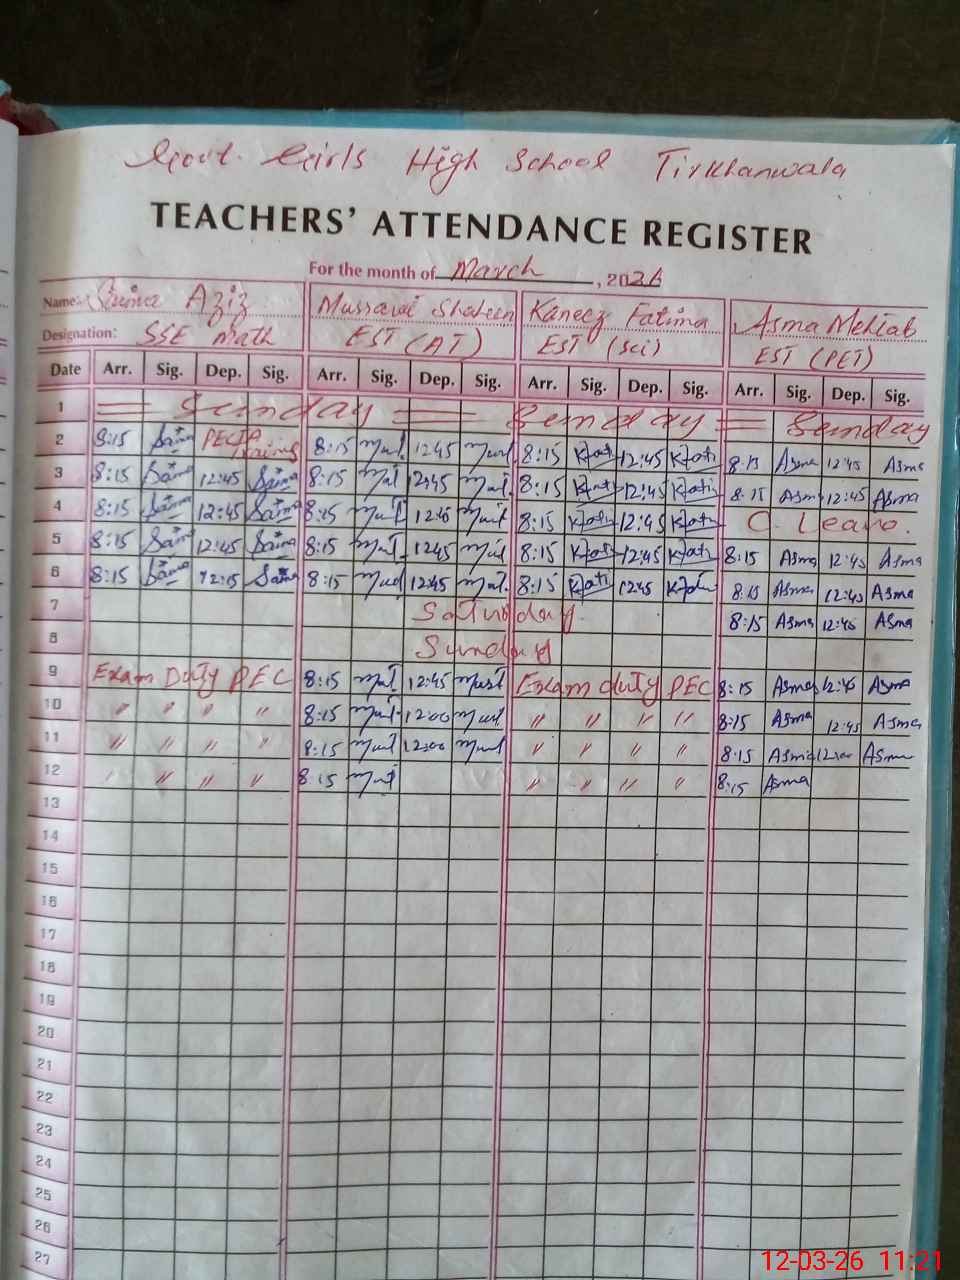 Govt. Girls High School Tirkhanwala
TEACHERS' ATTENDANCE REGISTER
For the month of March, 2026
Name: Saima Aziz Mussarat Shaheen Kaneez Fatima Asma Mehtab
Designation: SSE Math EST (AT) EST (Sci) EST (PET)
Date Arr. Sig. Dep. Sig. Arr. Sig. Dep. Sig. Arr. Sig. Dep. Sig. Arr. Sig. Dep. Sig.
1 = Sunday = Sunday = Sunday
2 8:15 Saima 8:15 12:45 8:15 12:45 8:15 Asma 12:45 Asma
3 8:15 Saima 12:45 Saima 8:15 12:45 8:15 12:45 8:15 Asma 12:45 Asma
4 8:15 Saima 12:45 Saima 8:15 12:45 8:15 12:45 C. Leave.
5 8:15 Saima 12:45 Saima 8:15 1245 8:15 12:45 8:15 Asma 12:45 Asma
6 8:15 Saima 12:15 Saima 8:15 12:45 8:15 12:45 8:15 Asma 12:45 Asma
7 Saturday 8:15 Asma 12:45 Asma
8 Sunday
9 Exam Duty PEC 8:15 12:45 Exam duty PEC 8:15 Asma 12:45 Asma
10 " " " " 8:15 12:00 " " " " 8:15 Asma 12:45 Asma
11 " " " " 8:15 12:00 " " " " 8:15 Asma 12:00 Asma
12 " " " " 8:15 " " " " 8:15 Asma
13
14
15
16
17
18
19
20
21
22
23
24
25
26
27
12-03-26 11:21